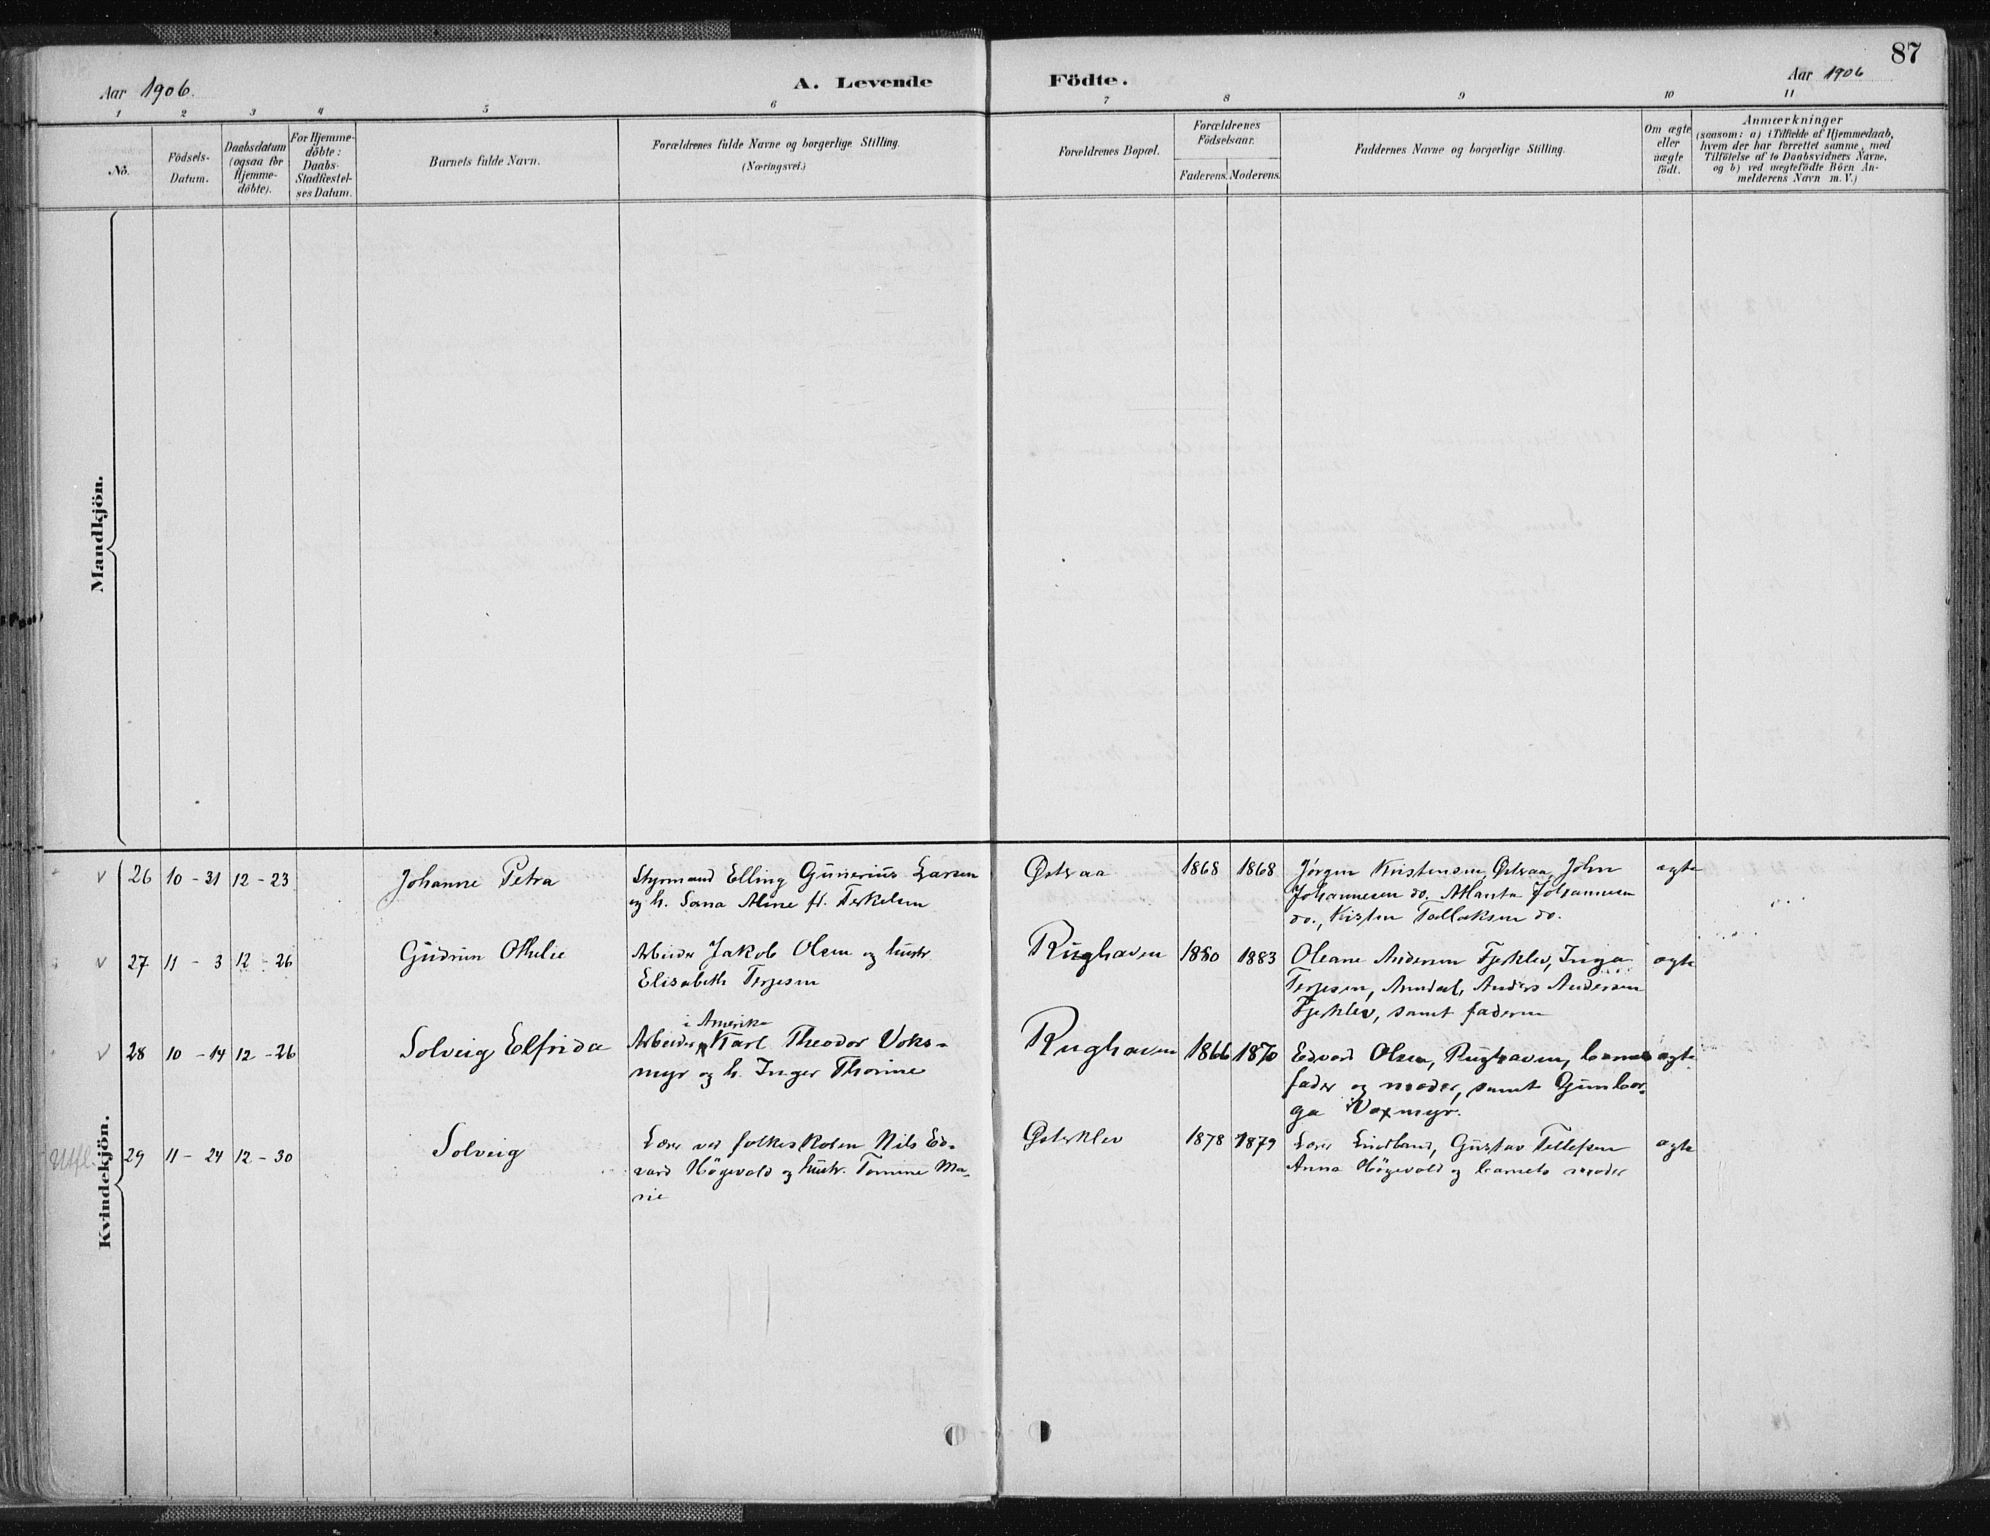 87
Aar 1906.
A. Levende Födte.
Aar 1906
1 2 3 4 5 6 7 8 9 10 11
No.
Födsels-
Datum.
Daabsdatum
(ogsaa for
Hjemme-
döbte).
For Hjemme-
döbte:
Daabs-
Stadfæstel-
ses Datum.
Barnets fulde Navn.
Forældrenes fulde Navne og borgerlige Stilling.
(Næringsvei.)
Forældrenes Bopæl.
Forældrenes
Födselsaar.
Faderens. Moderens.
Faddernes Navne og borgerlige Stilling.
Om ægte
eller
uægte
födt.
Anmærkninger
(saasom: a) i Tilfælde af Hjemmedaab,
hvem der har forrettet samme, med
Tilföielse af to Daabsvidners Navne,
og b) ved uægtefödte Börn An-
melderens Navn m. V.)
Mandkjön.
Kvindekjön.
v 26 10 - 31 12 - 23
Johanne Petra
Styrmand Elling Gunerius Larsen
og h. Aline f. Terkelsen
Østeraa
1868 1868
Jörgen Kristensen, Østeraa, John
Johannesen do. Atlanta Johannesen
do., Kisten Tallaksen do.
ægte
v 27 11 - 3 12 - 26
Gudrun Othelie
Arbeider Jakob Olsen og hustr
Elisabeth Terjesen
Rughaven
1880 1883
Oleane Andersen Fjerklev, Inga
Terjesen, Arendal, Anders Andersen
Fjerklev, samt faderen
ægte
v 28 10 - 14 12 - 26
Solveig Elfrida
i Amerika
Arbeider Karl Theodor Voks-
myr og h. Inger Thorine
Rughaven
1866 1870
Edvard Olsen, Rughaven, barnets
fader og moder, samt Gunbor-
ga Voxmyr.
ægte
Utfl. 29 11 - 24 12 - 30
Solveig
Lærer ved folkeskolen Nils Ed-
vard Högevold og hustr. Tomine Ma-
rie
Østerklev
1878 1879
Lærer Lindland, Gustav Tellefsen
Anna Högevold og barnets moder
ægte